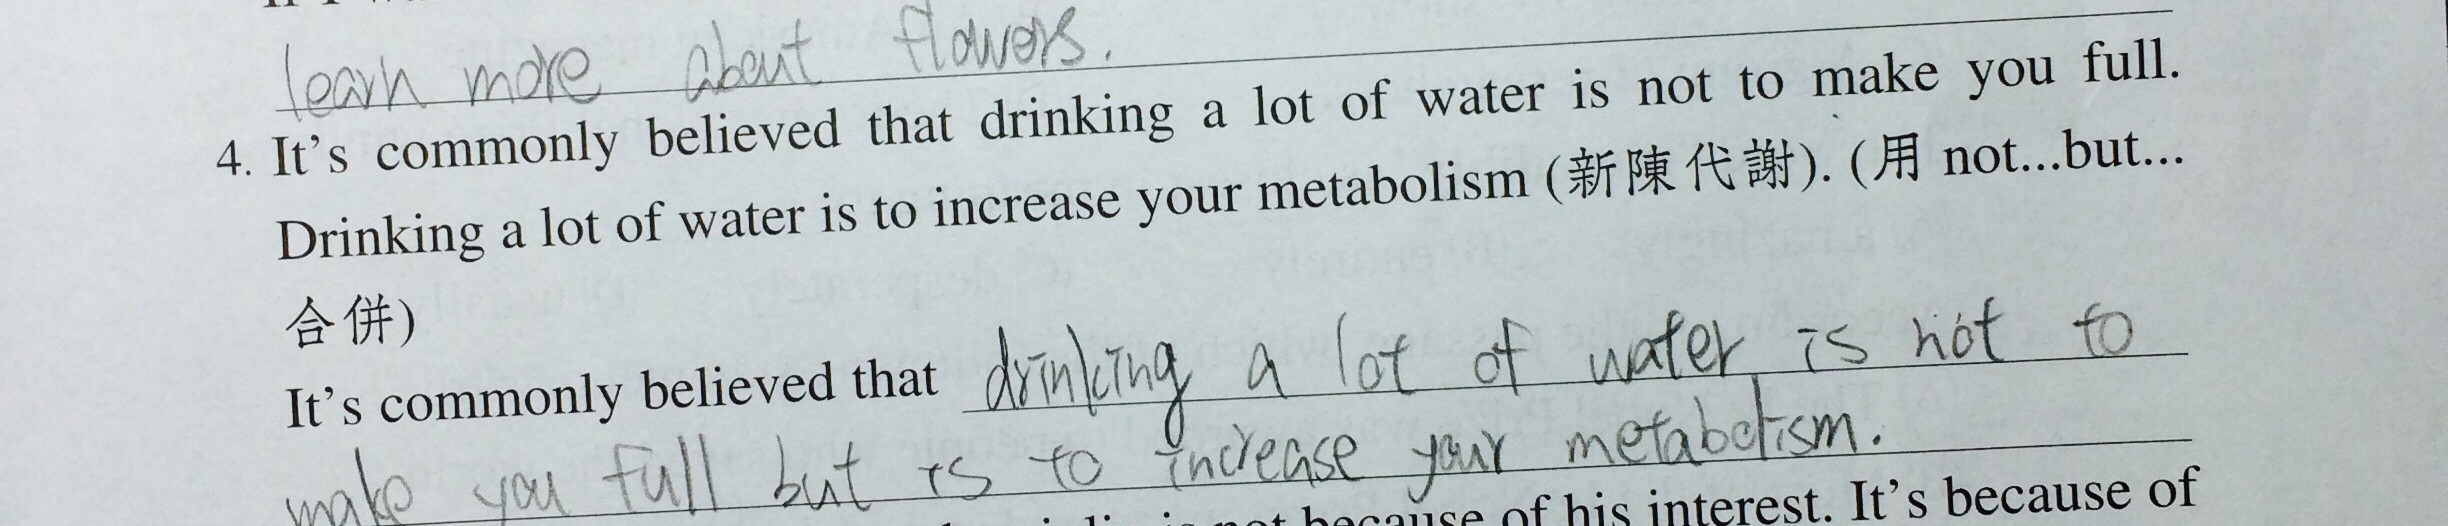 learn more about flowers.
4. It's commonly believed that drinking a lot of water is not to make you full.
Drinking a lot of water is to increase your metabolism (新陳代謝). (用 not...but...
合併)
It's commonly believed that drinking a lot of water is not to
make you full but is to increase your metabolism.
not because of his interest. It's because of